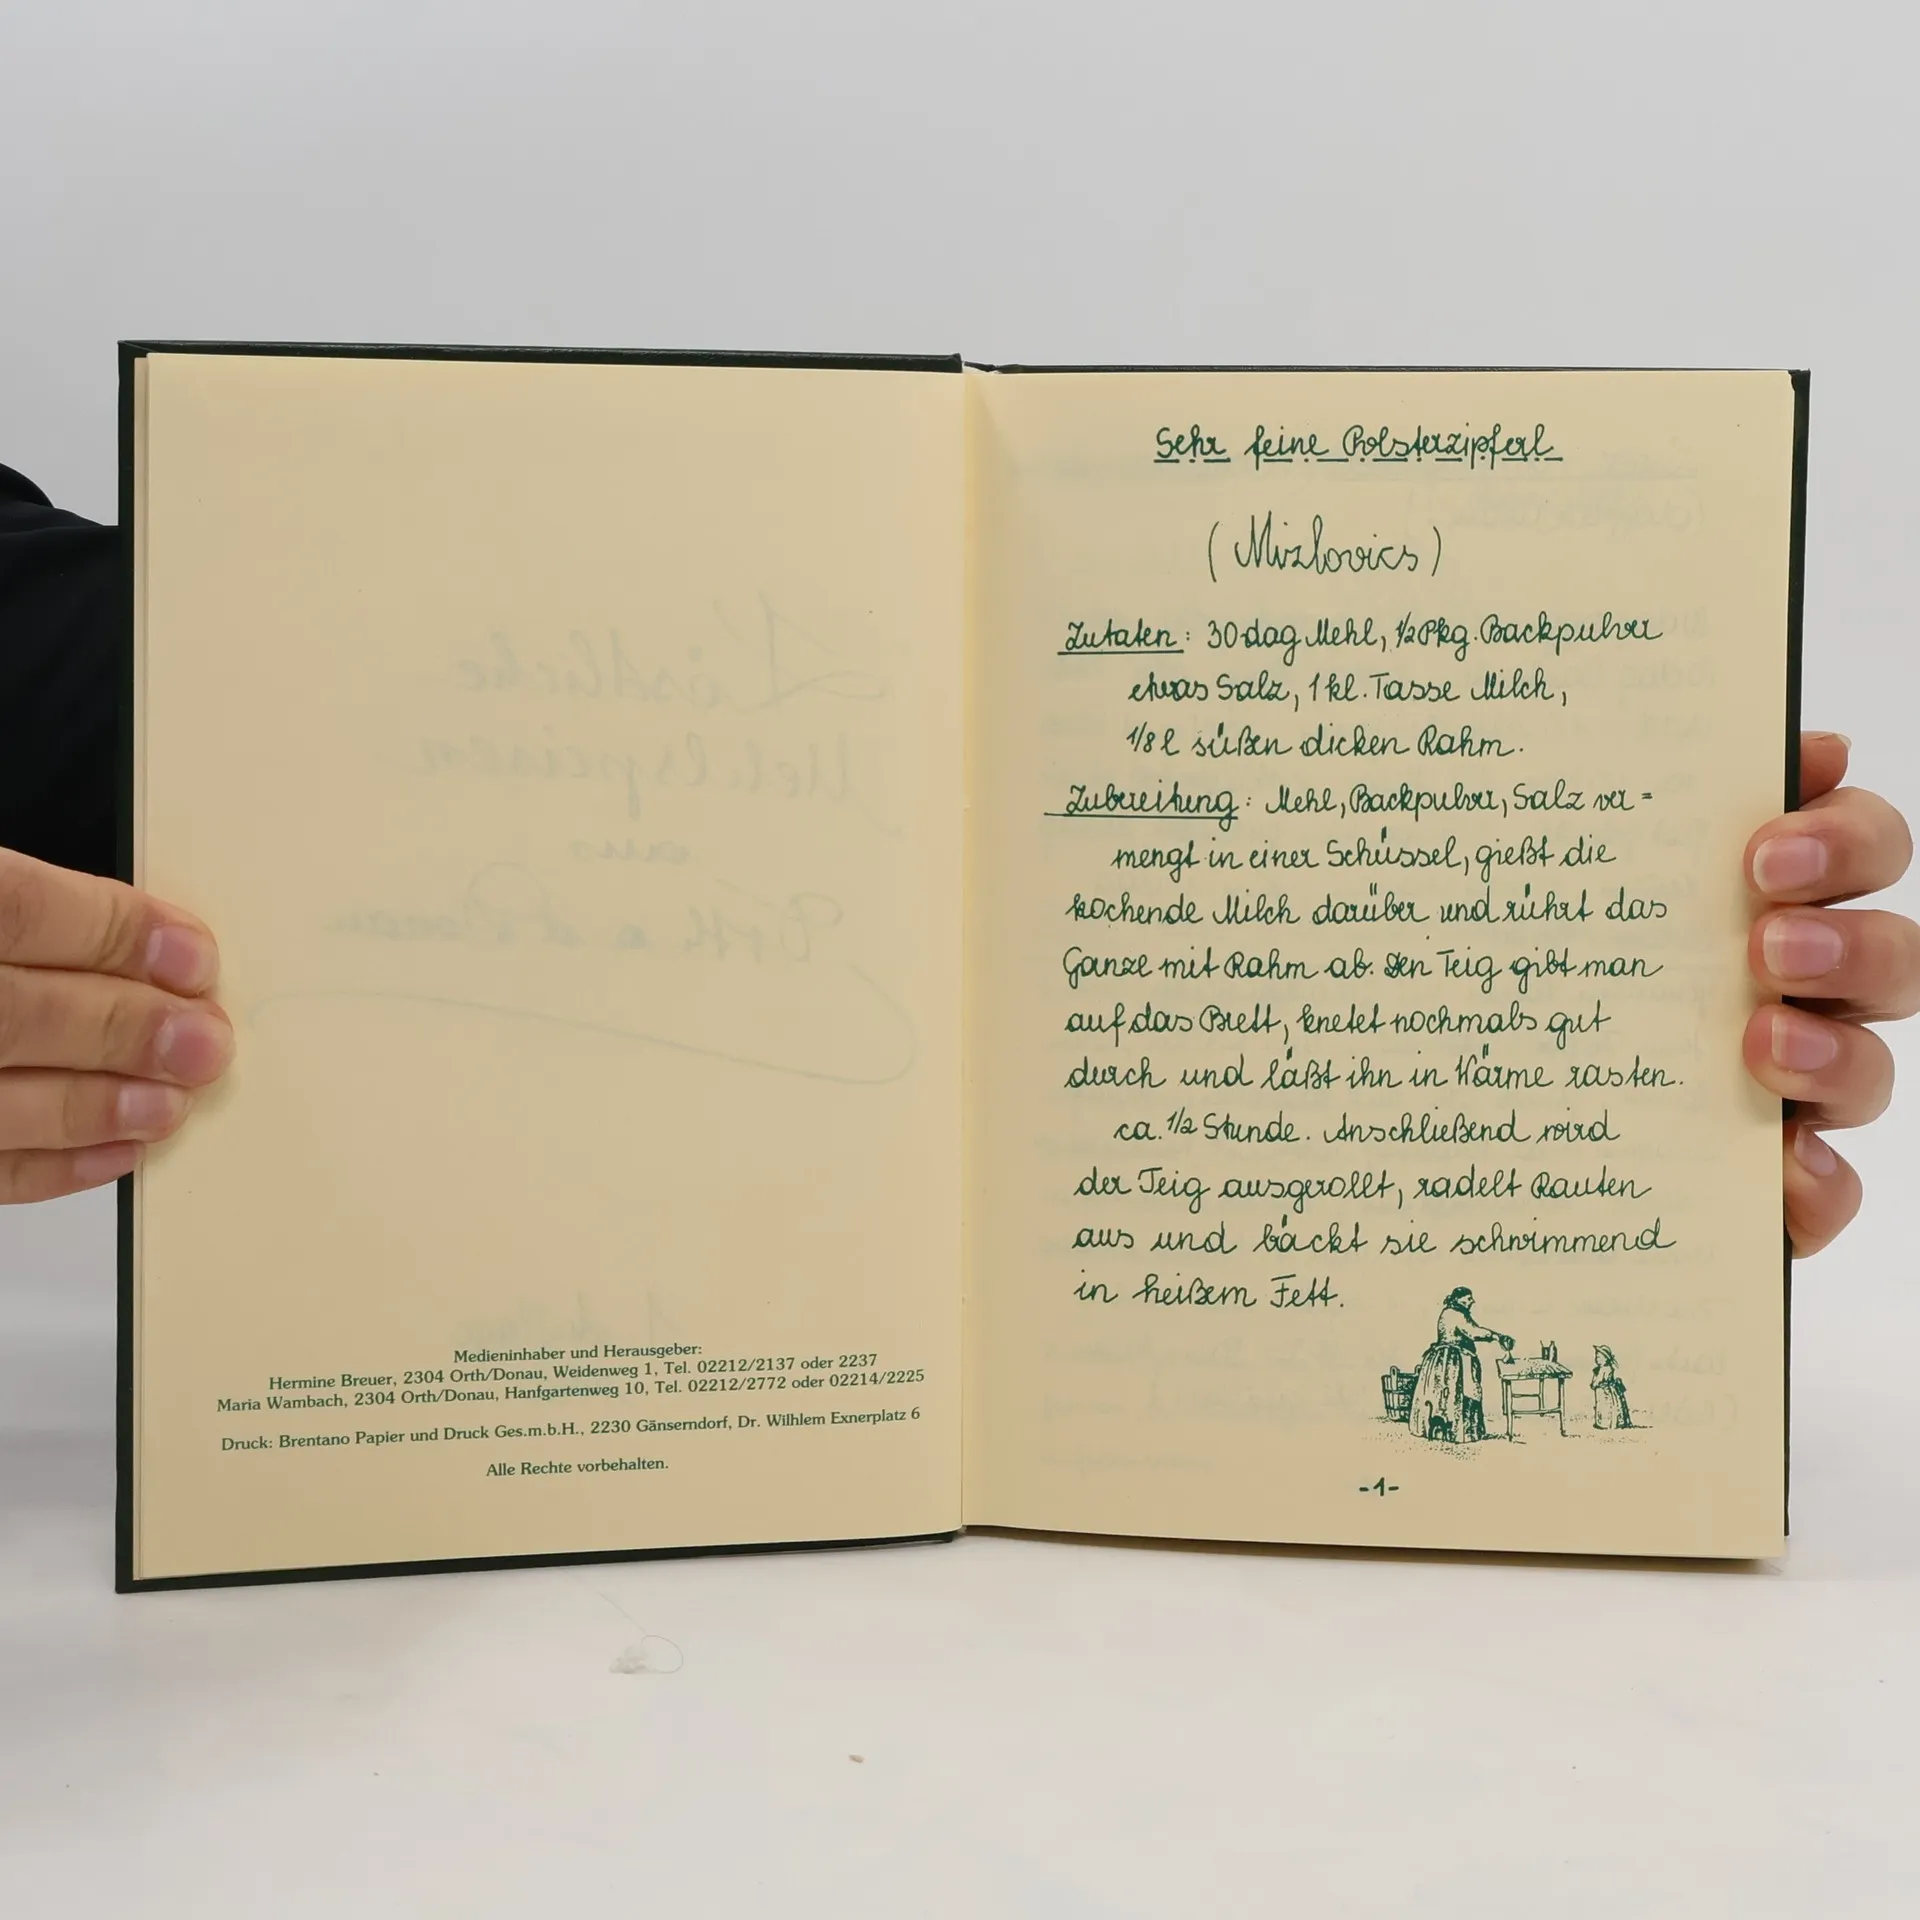 Medieninhaber und Herausgeber:
Hermine Breuer, 2304 Orth/Donau, Weidenweg 1, Tel. 02212/2137 oder 2237
Maria Wambach, 2304 Orth/Donau, Hanfgartenweg 10, Tel. 02212/2772 oder 02214/2225
Druck: Brentano Papier und Druck Ges.m.b.H., 2230 Gänserndorf, Dr. Wilhlem Exnerplatz 6
Alle Rechte vorbehalten.
Sehr feine Polsterzipferl
(Mizlovics)
Zutaten: 30 dag Mehl, 1/2 Pkg. Backpulver
etwas Salz, 1 kl. Tasse Milch,
1/8 l süßen dicken Rahm.
Zubereitung: Mehl, Backpulver, Salz ver=
mengt in einer Schüssel, gießt die
kochende Milch darüber und rührt das
Ganze mit Rahm ab. Den Teig gibt man
auf das Brett, knetet nochmals gut
durch und läßt ihn in Wärme rasten.
ca. 1/2 Stunde. Anschließend wird
der Teig ausgerollt, radelt Rauten
aus und bäckt sie schwimmend
in heißem Fett.
-1-